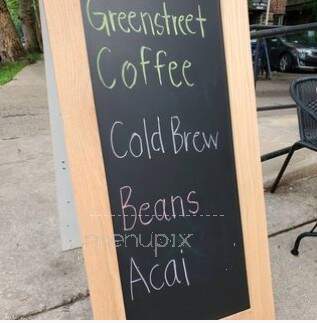 Greenstreet
Coffee
Cold Brew
Beans
menupix
Acai